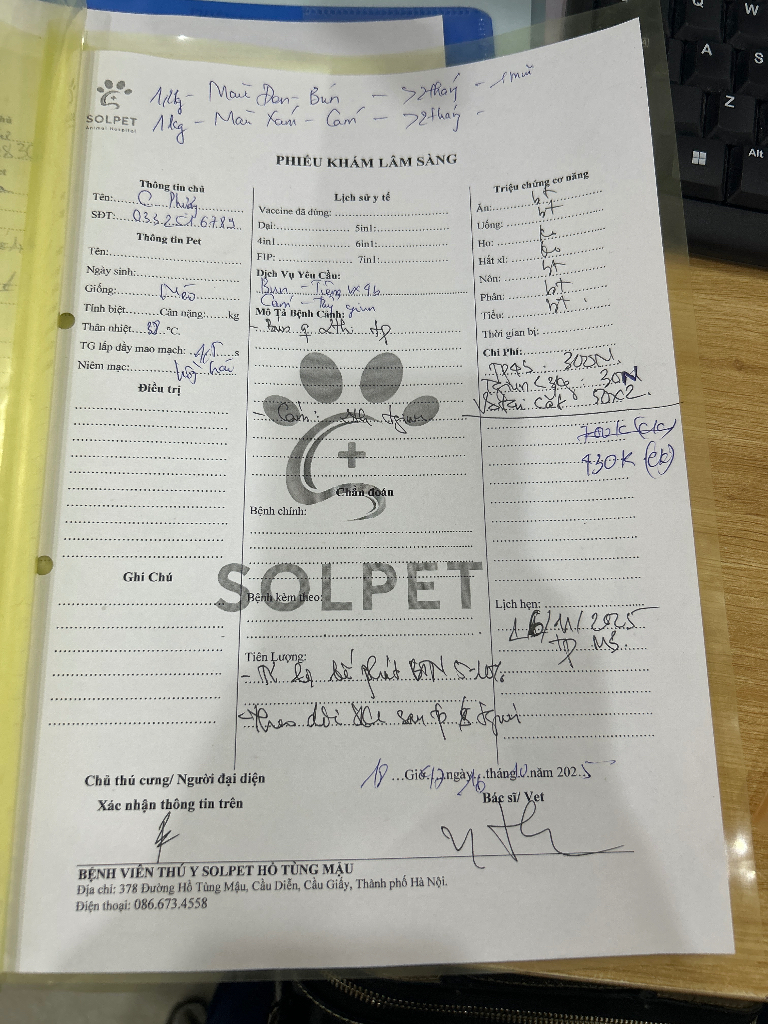 SOLPET
Animal Hospital
1,2kg - Màu Đen - Bún - >2 tháng - 1 mũi
1kg - Màu Xám - Cám - >2 tháng -
PHIẾU KHÁM LÂM SÀNG
Thông tin chủ
Tên: C. Phương
SĐT: 0332516789
Thông tin Pet
Tên:
Ngày sinh:
Giống: Mèo
Tính biệt Cân nặng: kg
Thân nhiệt 38 °C.
TG lấp đầy mao mạch: 1,5 s
Niêm mạc:
Điều trị
Ghi Chú
Lịch sử y tế
Vaccine đã dùng:
Dại: 5in1:
4in1 6in1:
FIP: 7in1:
Dịch Vụ Yêu Cầu:
Bún - Tiêm
Cám - Tẩy giun
Mô Tả Bệnh Cảnh:
- Cám:
Chẩn đoán
Bệnh chính:
SOLPET
Bệnh kèm theo:
Tiên Lượng:
5-10%
theo dõi
Triệu chứng cơ năng
Ăn: bt
Uống: bt
Ho: ko
Hắt xì: ko
Nôn: bt
Phân: bt
Tiểu: bt
Thời gian bị:
Chi Phí:
300K
30K
50x2
430K (ck)
Lịch hẹn:
16/11/2025
Chủ thú cưng/ Người đại diện
Xác nhận thông tin trên
18 Giờ ngày tháng 10 năm 2025
Bác sĩ/ Vet
BỆNH VIÊN THÚ Y SOLPET HỒ TÙNG MẬU
Địa chỉ: 378 Đường Hồ Tùng Mậu, Cầu Diễn, Cầu Giấy, Thành phố Hà Nội.
Điện thoại: 086.673.4558
Q
W
A
S
Z
Alt